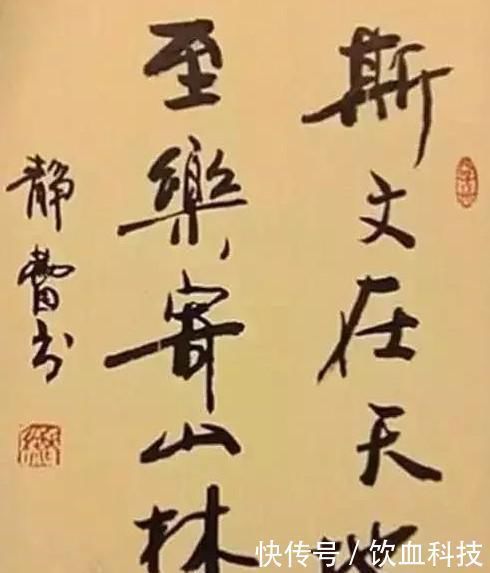 斯文在天地
至樂寄山林
静蕾书
快传号/饮血科技